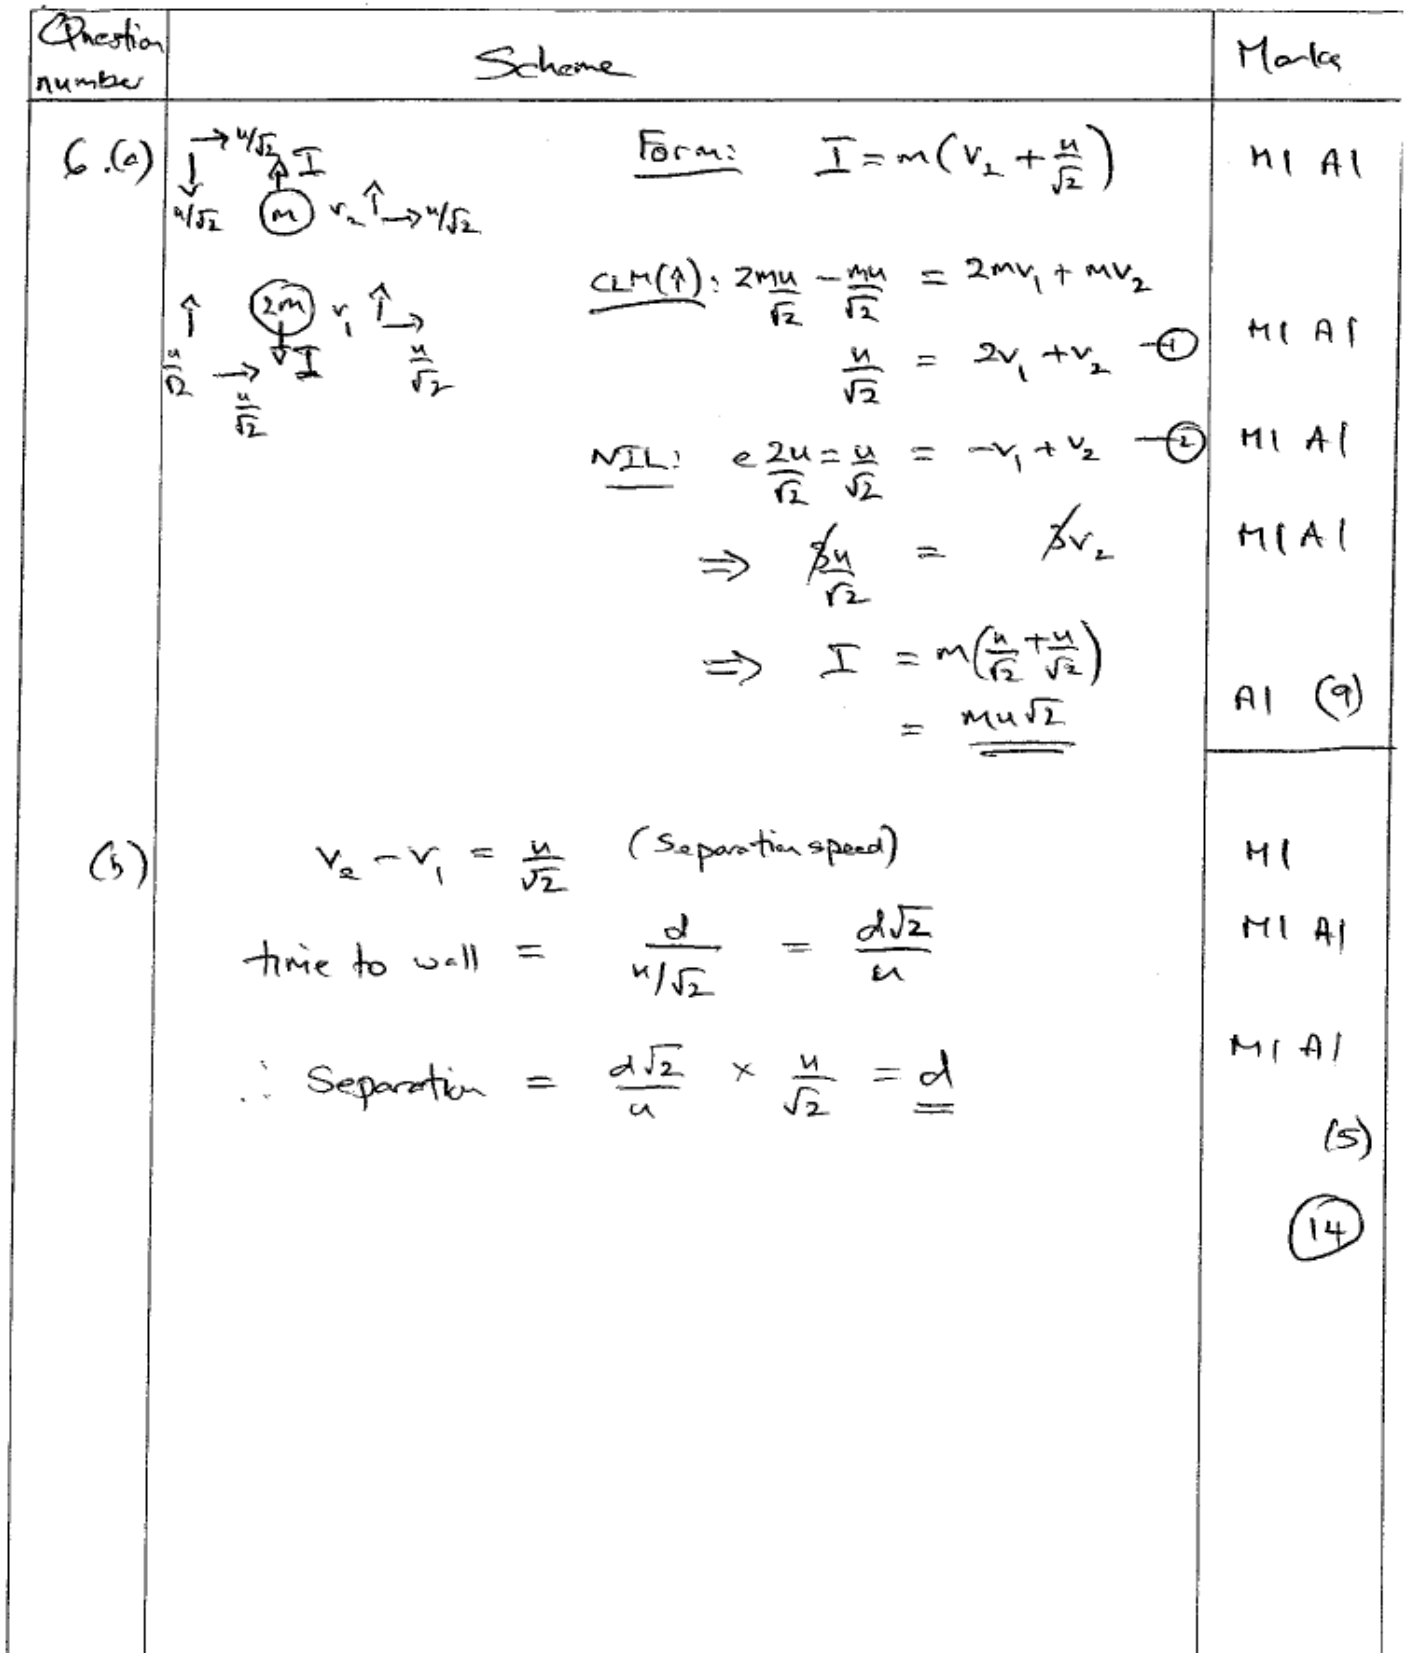 Question number Scheme Marks
6.(a) → u/√2 ↑ I Form: I = m(v₂ + u/√2) M1 A1
↓ u/√2 (m) v₂ ↑ → u/√2
CLM(↑): 2mu/√2 − mu/√2 = 2mv₁ + mv₂
↑ u/√2 → u/√2 (2m) ↓ I v₁ ↑ → u/√2
u/√2 = 2v₁ + v₂ —① M1 A1
NIL: e 2u/√2 = u/√2 = −v₁ + v₂ —② M1 A1
⇒ 3u/√2 = 3v₂ M1 A1
⇒ I = m(u/√2 + u/√2)
= mu√2 A1 (9)
(b) v₂ − v₁ = u/√2 (separation speed) M1
time to wall = d/(u/√2) = d√2/u M1 A1
∴ Separation = d√2/u × u/√2 = d M1 A1
(5)
14